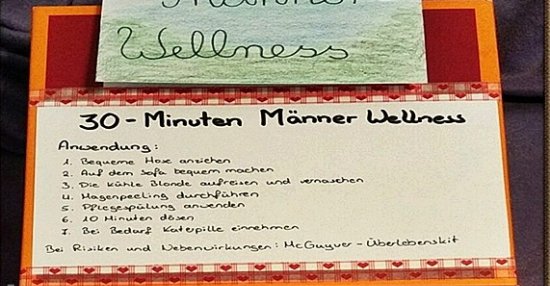 Männer
Wellness
30-Minuten Männer Wellness
Anwendung:
1. Bequeme Hose anziehen
2. Auf dem Sofa bequem machen
3. Die kühle Blonde aufreisen und vernaschen
4. Magenpeeling durchführen
5. Pflegespülung anwenden
6. 10 Minuten dösen
7. Bei Bedarf Katerpille einnehmen
Bei Risiken und Nebenwirkungen: McGuyver-Überlebenskit